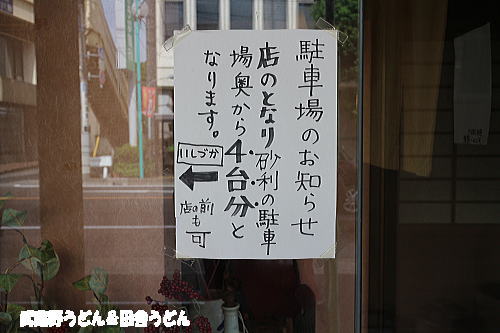 駐車場のお知らせ
店のとなり砂利の駐車
場奥から4台分と
なります。
いしづか
店の前
も
可
武蔵野うどん&田舎うどん